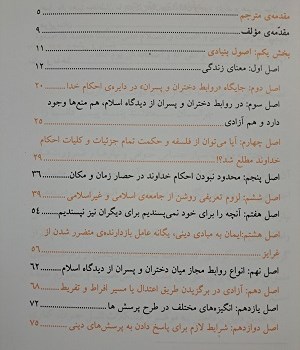 مقدمه‌ی مترجم ۵
مقدمه‌ی مؤلف ۹
بخش یکم: اصول بنیادی ۱۱
اصل اول: معنای زندگی ۱۲
اصل دوم: جایگاه «روابط دختران و پسران» در دایره‌ی احکام خدا ۲۰
اصل سوم: در روابط دختران و پسران از دیدگاه اسلام، هم منع‌ها وجود
دارد و هم آزادی ۲۵
اصل چهارم: آیا می‌توان از فلسفه و حکمت تمام جزئیات و کلیات احکام
خداوند مطلع شد؟! ۲۹
اصل پنجم: محدود نبودن احکام خداوند در حصار زمان و مکان ۳۶
اصل ششم: لزوم تعریفی روشن از جامعه‌ی اسلامی و غیراسلامی ۳۹
اصل هفتم: آنچه را برای خود نمی‌پسندیم برای دیگران نیز نپسندیم ۵۴
اصل هشتم: ایمان به مبادی دینی، یگانه عامل بازدارنده‌ی متضرر شدن از
غرایز ۵۶
اصل نهم: انواع روابط مجاز میان دختران و پسران از دیدگاه اسلام ۶۲
اصل دهم: آزادی در برگزیدن طریق اعتدال یا مسیر افراط و تفریط ۶۸
اصل یازدهم: انگیزه‌های مختلف در طرح پرسش ها ۷۲
اصل دوازدهم: شرایط لازم برای پاسخ دادن به پرسش‌های دینی ۷۵